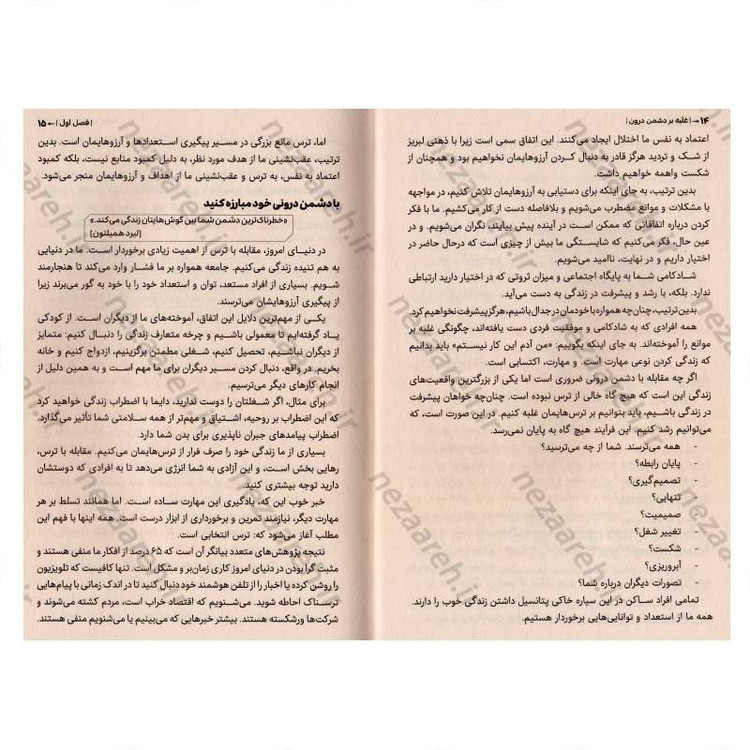 ۱۴ ← | غلبه بر دشمن درون |
اعتماد به نفس ما اختلال ایجاد می‌کنند. این اتفاق سمی است زیرا با ذهنی لبریز
از شک و تردید هرگز قادر به دنبال کردن آرزوهایمان نخواهیم بود و همچنان از
شکست واهمه خواهیم داشت.
بدین ترتیب، به جای اینکه برای دستیابی به آرزوهایمان تلاش کنیم، در مواجهه
با مشکلات و موانع مضطرب می‌شویم و بلافاصله دست از کار می‌کشیم. ما با فکر
کردن درباره اتفاقاتی که ممکن است در آینده پیش بیایند، نگران می‌شویم. و در
عین حال، فکر می‌کنیم که شایستگی ما بیش از چیزی است که درحال حاضر در
اختیار داریم و در نهایت، ناامید می‌شویم.
شادکامی شما به پایگاه اجتماعی و میزان ثروتی که در اختیار دارید ارتباطی
ندارد. بلکه، با رشد و پیشرفت در زندگی به دست می‌آید.
بدین ترتیب، چنان‌چه همواره با خودمان در جدال باشیم، هرگز پیشرفت نخواهیم کرد.
همه افرادی که به شادکامی و موفقیت فردی دست یافته‌اند، چگونگی غلبه بر
موانع را آموخته‌اند. به جای اینکه بگوییم: «من آدم این کار نیستم» باید بدانیم
که زندگی کردن نوعی مهارت است. و مهارت، اکتسابی است.
اگر چه مقابله با دشمن درونی ضروری است اما یکی از بزرگترین واقعیت‌های
زندگی این است که هیچ گاه خالی از ترس نبوده است. چنان‌چه خواهان پیشرفت
در زندگی باشیم، باید بتوانیم بر ترس‌هایمان غلبه کنیم. در این صورت است، که
می‌توانیم رشد کنیم. این فرآیند هیچ گاه به پایان نمی‌رسد.
- همه می‌ترسند. شما از چه می‌ترسید؟
- پایان رابطه؟
- تصمیم‌گیری؟
- تنهایی؟
- صمیمیت؟
- تغییر شغل؟
- شکست؟
- آبروریزی؟
- تصورات دیگران درباره شما؟
تمامی افراد ساکن در این سیاره خاکی پتانسیل داشتن زندگی خوب را دارند.
همه ما از استعداد و توانایی‌هایی برخوردار هستیم.
| فصل اول | ← ۱۵
اما، ترس مانع بزرگی در مسیر پیگیری استعدادها و آرزوهایمان است. بدین
ترتیب، عقب‌نشینی ما از هدف مورد نظر، به دلیل کمبود منابع نیست، بلکه کمبود
اعتماد به نفس، به ترس و عقب‌نشینی ما از اهداف و آرزوهایمان منجر می‌شود.
با دشمن درونی خود مبارزه کنید
«خطرناک‌ترین دشمن شما بین گوش‌هایتان زندگی می‌کند.»
[لیرد همیلتون]
در دنیای امروز، مقابله با ترس از اهمیت زیادی برخوردار است. ما در دنیایی
به هم تنیده زندگی می‌کنیم. جامعه همواره بر ما فشار وارد می‌کند تا هنجارمند
شویم. بسیاری از افراد مستعد، توان و استعداد خود را با خود به گور می‌برند زیرا
از پیگیری آرزوهایشان می‌ترسند.
یکی از مهم‌ترین دلایل این اتفاق، آموخته‌های ما از دیگران است. از کودکی
یاد گرفته‌ایم تا معمولی باشیم و چرخه متعارف زندگی را دنبال کنیم: متمایز
از دیگران نباشیم، تحصیل کنیم، شغلی مطمئن برگزینیم، ازدواج کنیم و خانه
بخریم. در واقع، دنبال کردن مسیر دیگران برای ما مهم است و به همین دلیل از
انجام کارهای دیگر می‌ترسیم.
برای مثال، اگر شغلتان را دوست ندارید، دایما با اضطراب زندگی خواهید کرد
که این اضطراب بر روحیه، اشتیاق و مهم‌تر از همه سلامتی شما تأثیر می‌گذارد.
اضطراب پیامدهای جبران ناپذیری برای بدن شما دارد.
بسیاری از ما زندگی خود را صرف فرار از ترس‌هایمان می‌کنیم. مقابله با ترس،
رهایی بخش است، و این آزادی به شما انرژی می‌دهد تا به افرادی که دوستشان
دارید توجه بیشتری کنید.
خبر خوب این که، یادگیری این مهارت ساده است. اما همانند تسلط بر هر
مهارت دیگر، نیازمند تمرین و برخورداری از ابزار درست است. همه اینها با فهم این
مطلب آغاز می‌شود که: ترس انتخابی است.
نتیجه پژوهش‌های متعدد بیانگر آن است که ۶۵ درصد از افکار ما منفی هستند و
مثبت گرا بودن در دنیای امروز کاری زمان‌بر و مشکل است. تنها کافیست که تلویزیون
را روشن کرده یا اخبار را از تلفن هوشمند خود دنبال کنید تا در اندک زمانی با پیام‌هایی
ترسناک احاطه شوید. می‌شنویم که اقتصاد خراب است، مردم کشته می‌شوند و
شرکت‌ها ورشکسته هستند. بیشتر خبرهایی که می‌بینیم یا می‌شنویم منفی هستند.
nezaareh.ir